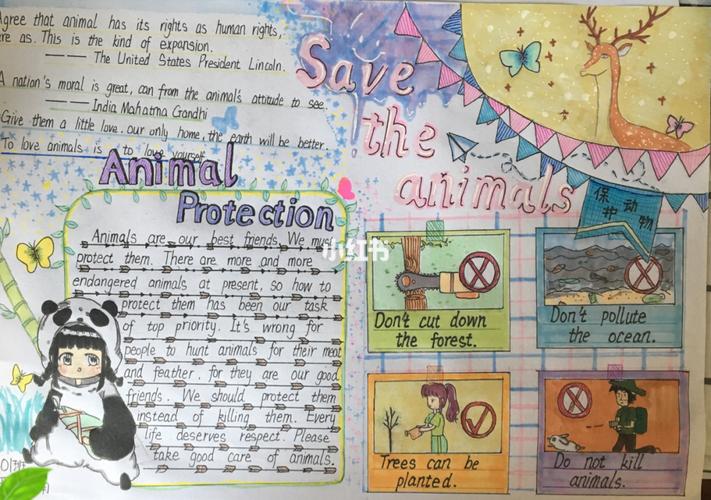 Agree that animal has its rights as human rights,
are as. This is the kind of expansion.
—— The United States President Lincoln.
A nation's moral is great, can from the animal's attitude to see
—— India Mahatma Gandhi
Give them a little love, our only home, the earth will be better.
To love animals is to love yourself
Animal
Protection
Animals are our best friends. We must
protect them. There are more and more
endangered animals at present, so how to
protect them has been our task
of top priority. It's wrong for
people to hunt animals for their meat
and feather, for they are our good
friends. We should protect them
instead of killing them. Every
life deserves respect. Please
take good care of animals.
Save
the
animals
保护动物
小红书
Don't cut down
the forest.
Don't pollute
the ocean.
Trees can be
planted.
Do not kill
animals.